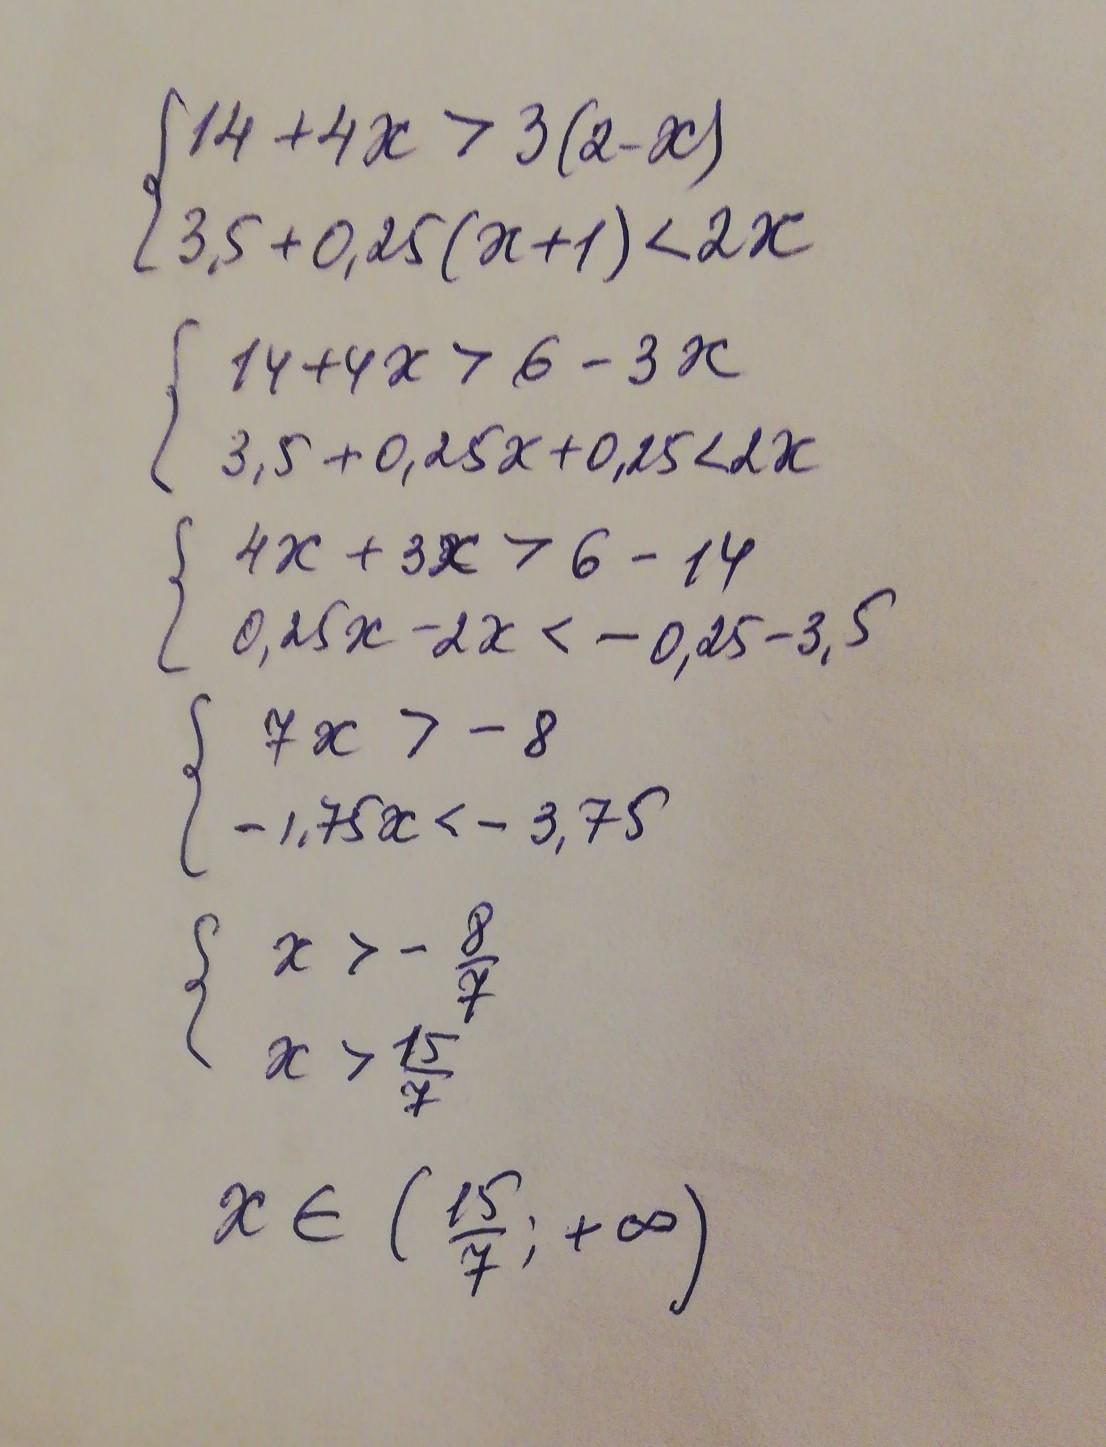 { 14 + 4x > 3(2-x)
3,5 + 0,25(x+1) < 2x
{ 14 + 4x > 6 - 3x
3,5 + 0,25x + 0,25 < 2x
{ 4x + 3x > 6 - 14
0,25x - 2x < - 0,25 - 3,5
{ 7x > - 8
- 1,75x < - 3,75
{ x > - 8/7
x > 15/7
x ∈ ( 15/7 ; + ∞ )